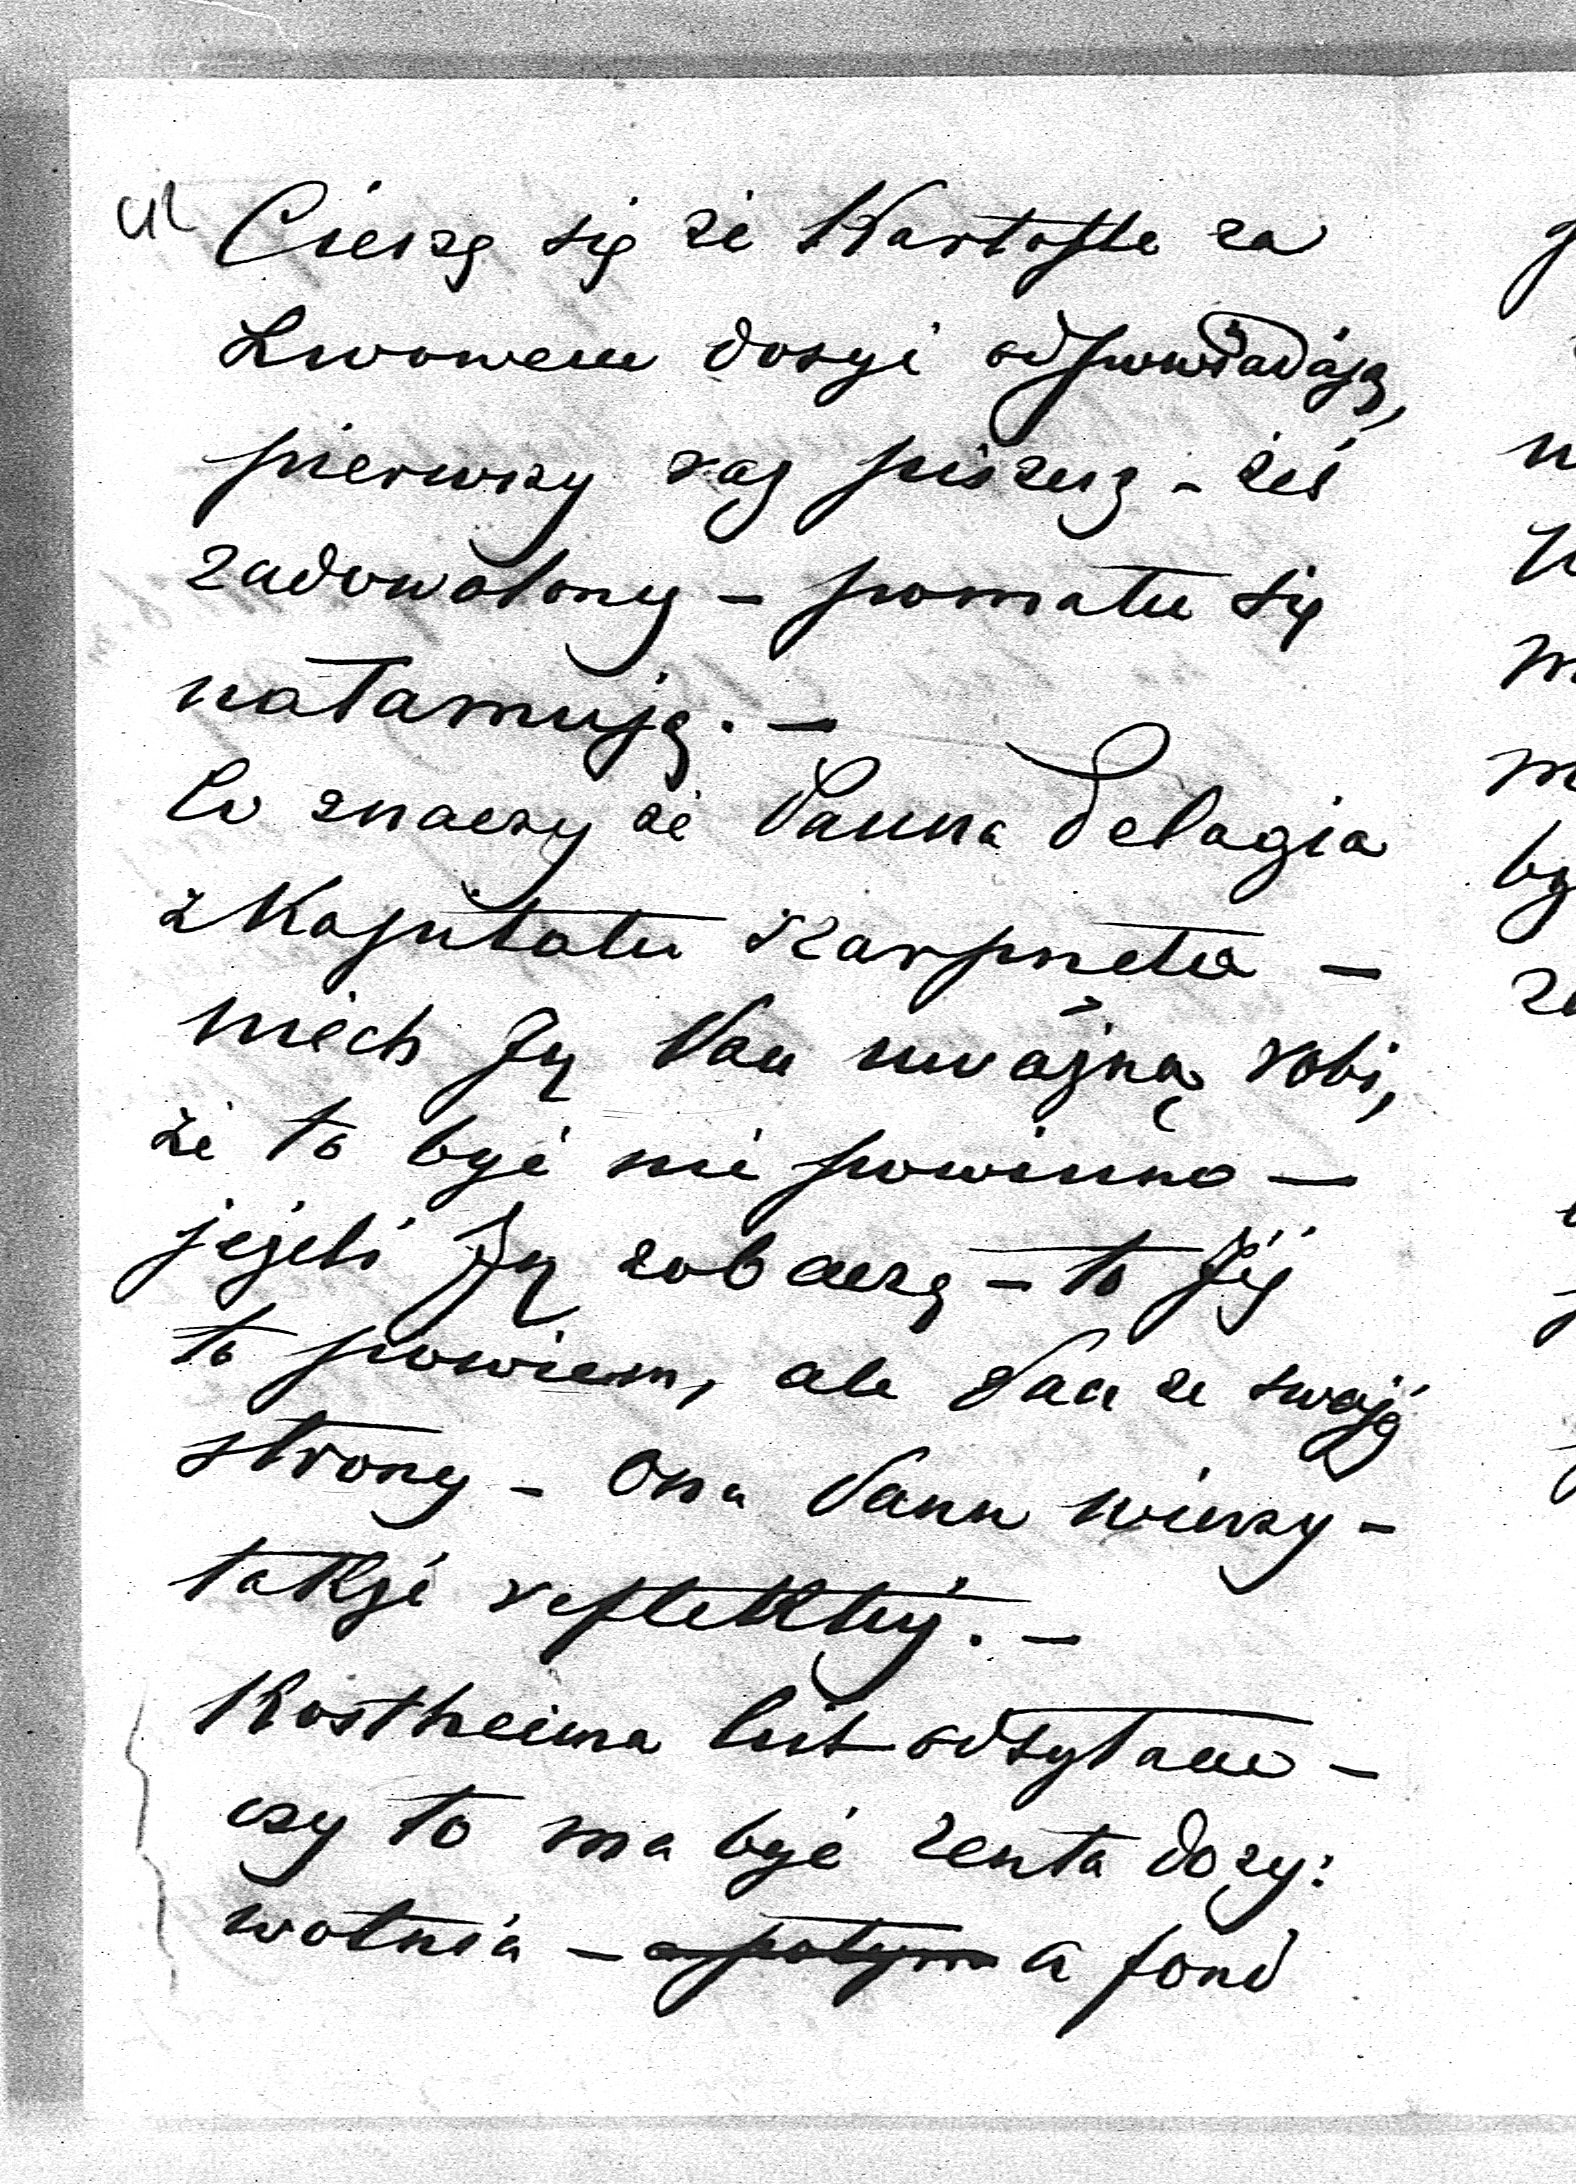 Cieszę się że Kartofle za
Lwowem dosyć odpowiadają,
pierwszy raz piszesz – żeś
zadowolony – pomału się
nałamują. –
Co znaczy że Panna Pelagia
z Kapitału
niech Ją Pan uważną robi,
że to być nie powinno —
jeżeli Ją zobaczę – to Jéj
to powiem, ale Pan ze swojéj
strony – Ona Panu wierzy –
także reflektuj. –
Kostheima list odsyłam –
czy to ma być renta doży:
wotnia – a potym a fond